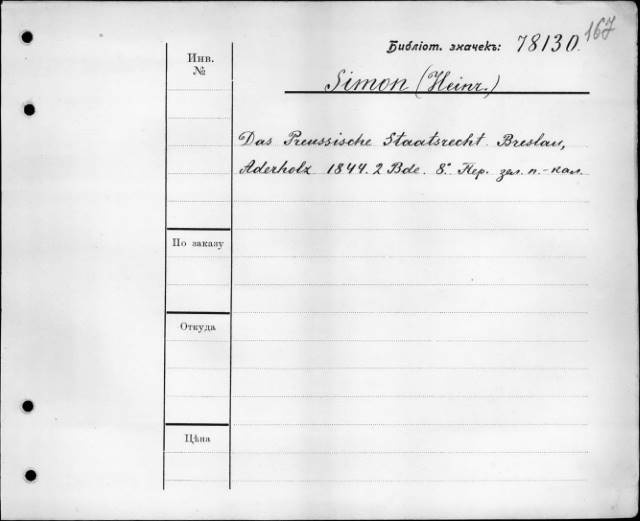 167
Библіот. значекъ: 78130.
Инв.
№
Simon (Heinr.)
Das Preussische Staatsrecht. Breslau,
Aderholz 1844. 2 Bde. 8.° Пер. зел. п.-кал.
По заказу
Откуда
Цѣна